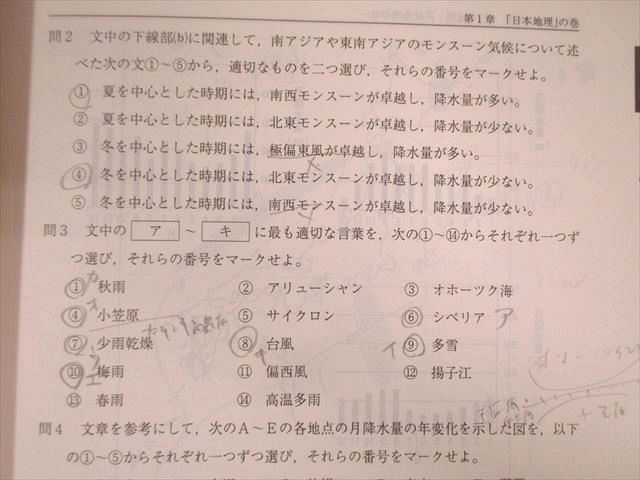 第1章 「日本地理」の巻
問2 文中の下線部(b)に関連して，南アジアや東南アジアのモンスーン気候について述
べた次の文①～⑤から，適切なものを二つ選び，それらの番号をマークせよ。
① 夏を中心とした時期には，南西モンスーンが卓越し，降水量が多い。
② 夏を中心とした時期には，北東モンスーンが卓越し，降水量が少ない。
③ 冬を中心とした時期には，極偏東風が卓越し，降水量が多い。
④ 冬を中心とした時期には，北東モンスーンが卓越し，降水量が少ない。
⑤ 冬を中心とした時期には，南西モンスーンが卓越し，降水量が少ない。
問3 文中の ア ～ キ に最も適切な言葉を，次の①～⑭からそれぞれ一つず
つ選び，それらの番号をマークせよ。
カ
① 秋雨 ② アリューシャン ③ オホーツク海
オ
④ 小笠原 ⑤ サイクロン ⑥ シベリア ア
⑦ 少雨乾燥 ⑧ 台風 イ ⑨ 多雪
キ
ウ
⑩ 梅雨 ⑪ 偏西風 ⑫ 揚子江
エ
⑬ 春雨 ⑭ 高温多雨
問4 文章を参考にして，次のA～Eの各地点の月降水量の年変化を示した図を，以下
の①～⑤からそれぞれ一つずつ選び，それらの番号をマークせよ。